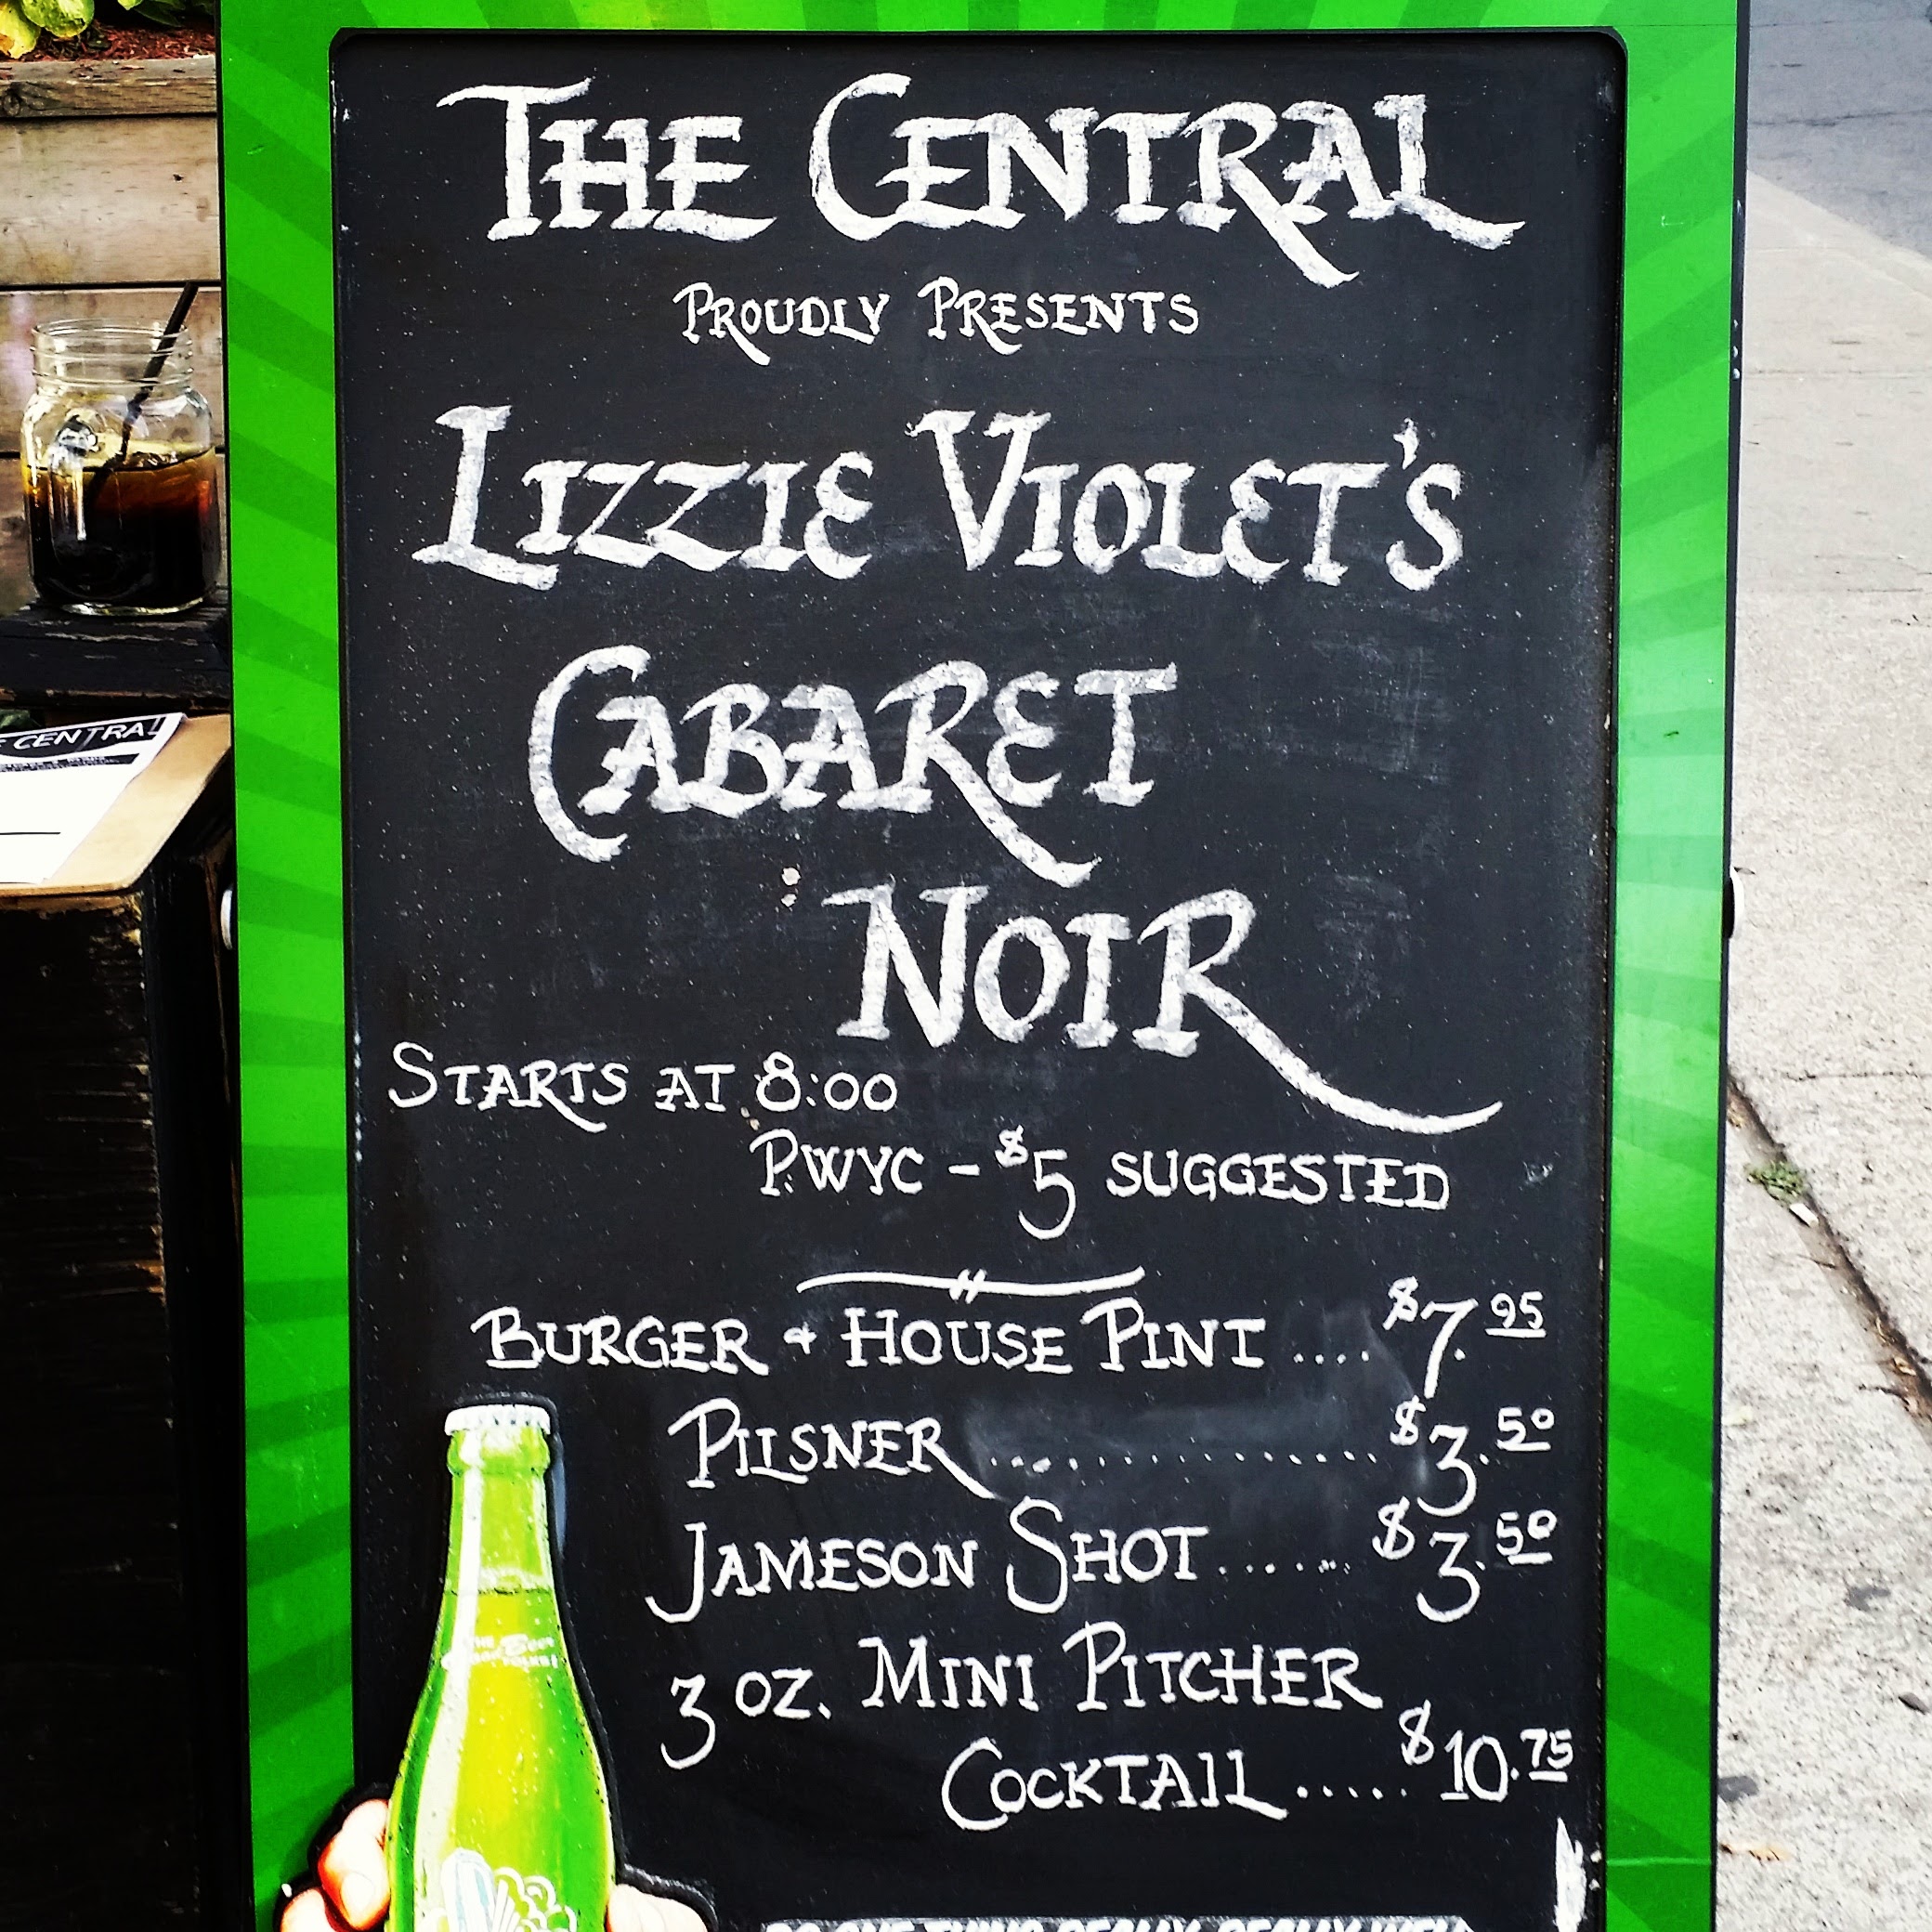 THE CENTRAL
PROUDLY PRESENTS
LIZZIE VIOLET'S
CABARET
NOIR
STARTS AT 8:00
P.W.Y.C - $5 SUGGESTED
BURGER + HOUSE PINT .... $7.95
PILSNER .............. $3.50
JAMESON SHOT ....... $3.50
3 OZ. MINI PITCHER
COCKTAIL ..... $10.75
CENTRAL